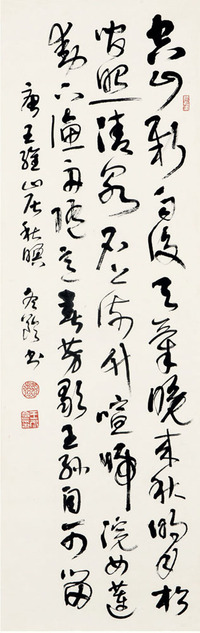 空山新雨後天氣晚来秋明月松
間照清泉石上流竹喧歸浣女蓮
動下漁舟隨意春芳歇王孫自可留
唐王維山居秋暝
書